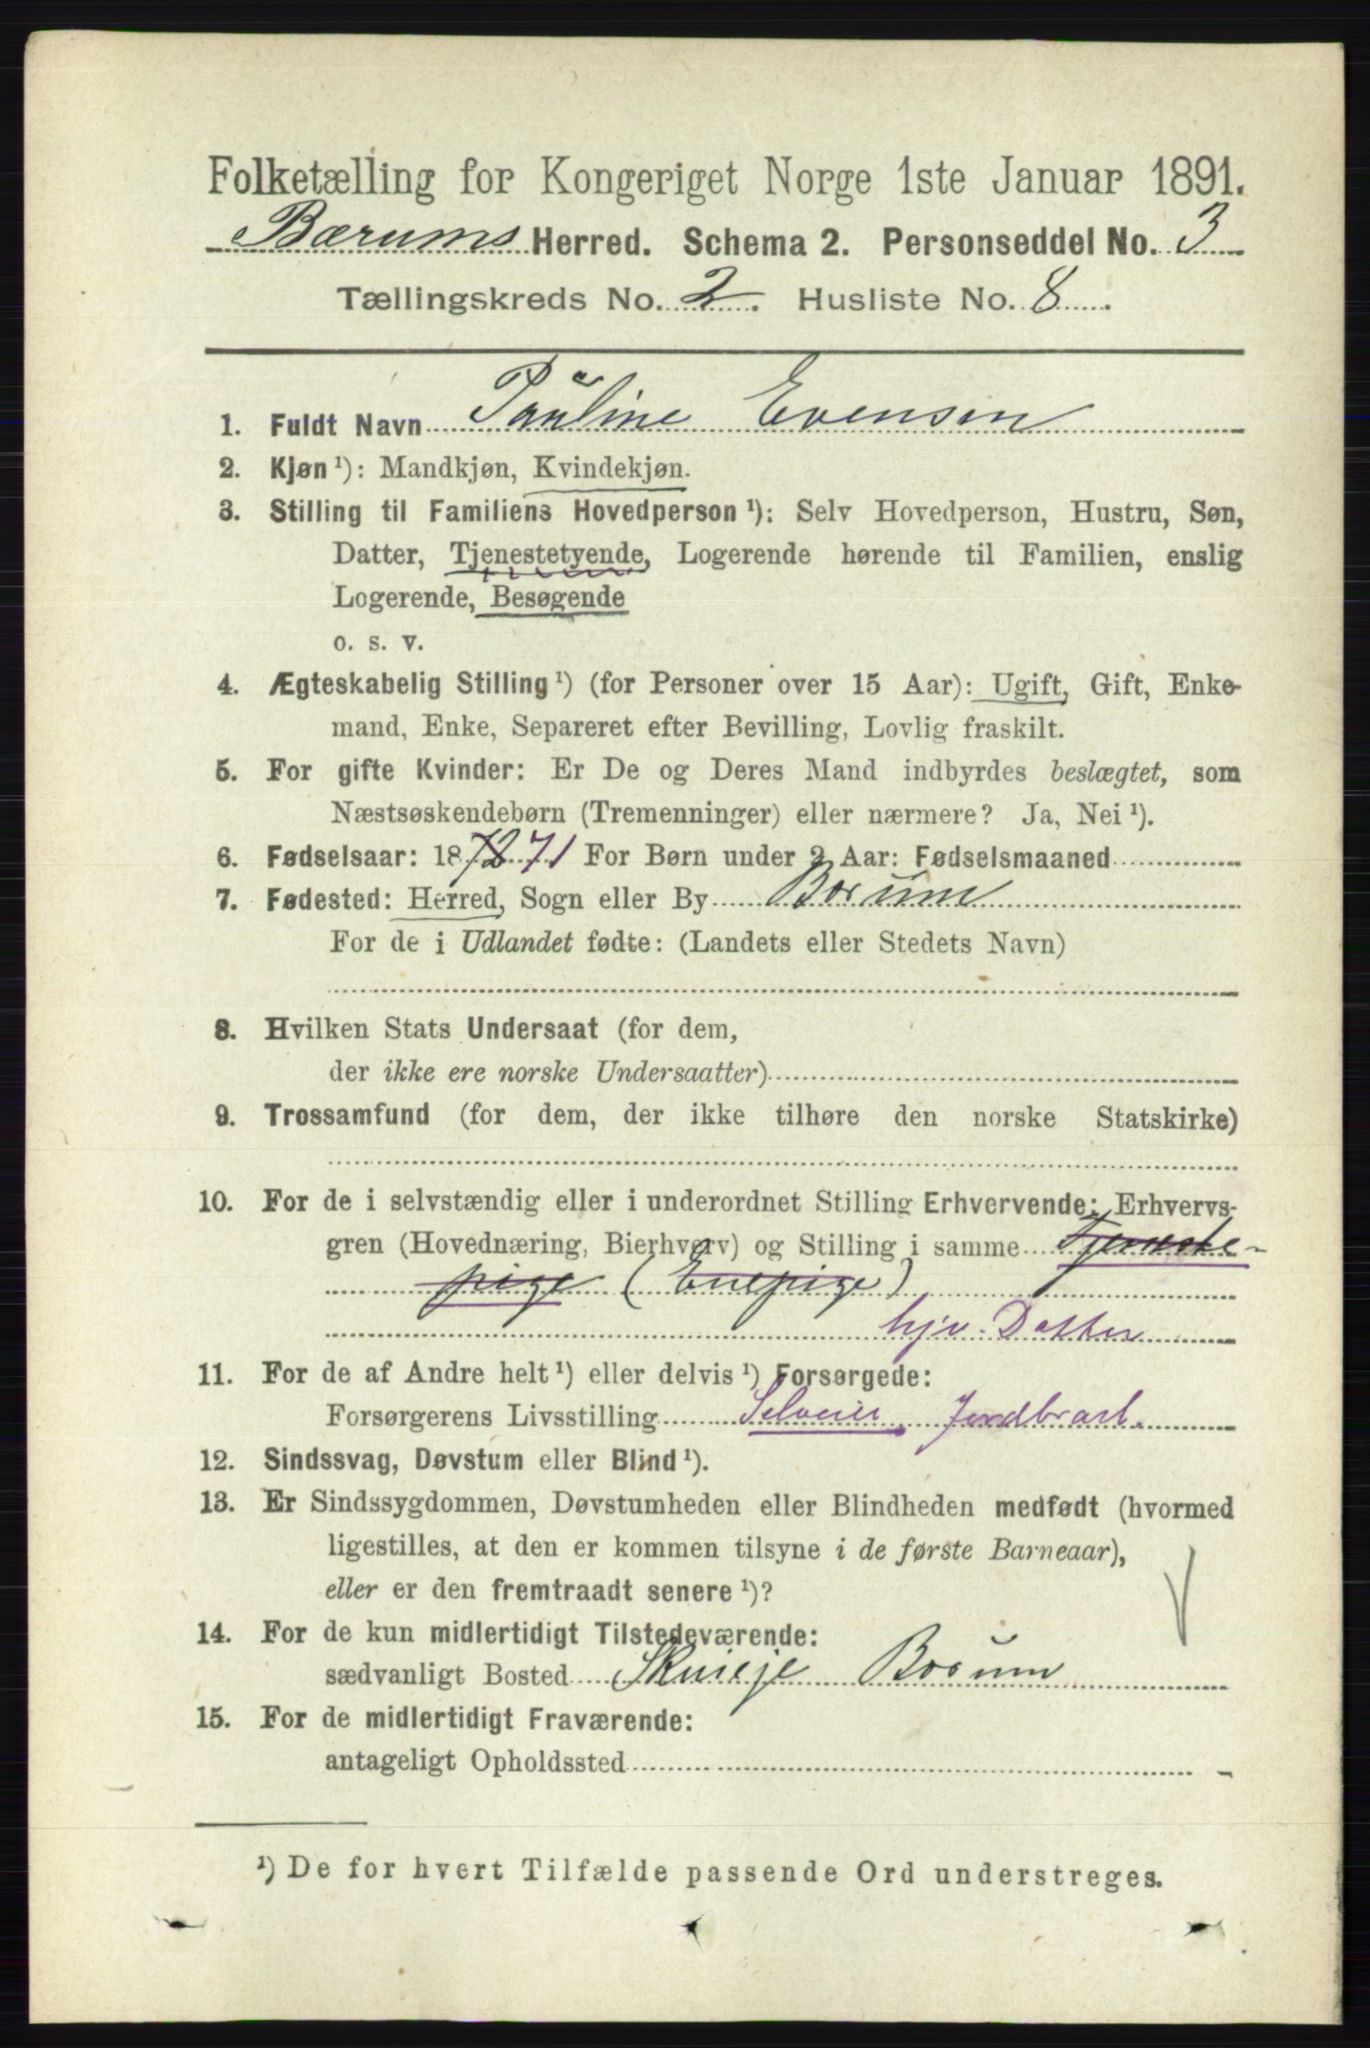 Folketælling for Kongeriget Norge 1ste Januar 1891.
Bærums Herred. Schema 2. Personseddel No. 3
Tællingskreds No. 2. Husliste No. 8.
1. Fuldt Navn Pauline Evensen
2. Kjøn ¹): Mandkjøn, Kvindekjøn.
3. Stilling til Familiens Hovedperson ¹): Selv Hovedperson, Hustru, Søn,
Datter, Tjenestetyende, Logerende hørende til Familien, enslig
Logerende, Besøgende
o. s. v.
4. Ægteskabelig Stilling ¹) (for Personer over 15 Aar): Ugift, Gift, Enke-
mand, Enke, Separeret efter Bevilling, Lovlig fraskilt.
5. For gifte Kvinder: Er De og Deres Mand indbyrdes beslægtet, som
Næstsøskendebørn (Tremenninger) eller nærmere? Ja, Nei ¹).
6. Fødselsaar: 1872 71 For Børn under 2 Aar: Fødselsmaaned
7. Fødested: Herred, Sogn eller By Borum
For de i Udlandet fødte: (Landets eller Stedets Navn)
8. Hvilken Stats Undersaat (for dem,
der ikke ere norske Undersaatter)
9. Trossamfund (for dem, der ikke tilhøre den norske Statskirke)
10. For de i selvstændig eller i underordnet Stilling Erhvervende: Erhvervs-
gren (Hovednæring, Bierhverv) og Stilling i samme Tjeneste-
pige (Enepige)
hjv. Datter
11. For de af Andre helt ¹) eller delvis ¹) Forsørgede:
Forsørgerens Livsstilling Selveier Jordbrart.
12. Sindssvag, Døvstum eller Blind ¹).
13. Er Sindssygdommen, Døvstumheden eller Blindheden medfødt (hvormed
ligestilles, at den er kommen tilsyne i de første Barneaar),
eller er den fremtraadt senere ¹)?
14. For de kun midlertidigt Tilstedeværende:
sædvanligt Bosted Skuieje Borum
15. For de midlertidigt Fraværende:
antageligt Opholdssted
¹) De for hvert Tilfælde passende Ord understreges.